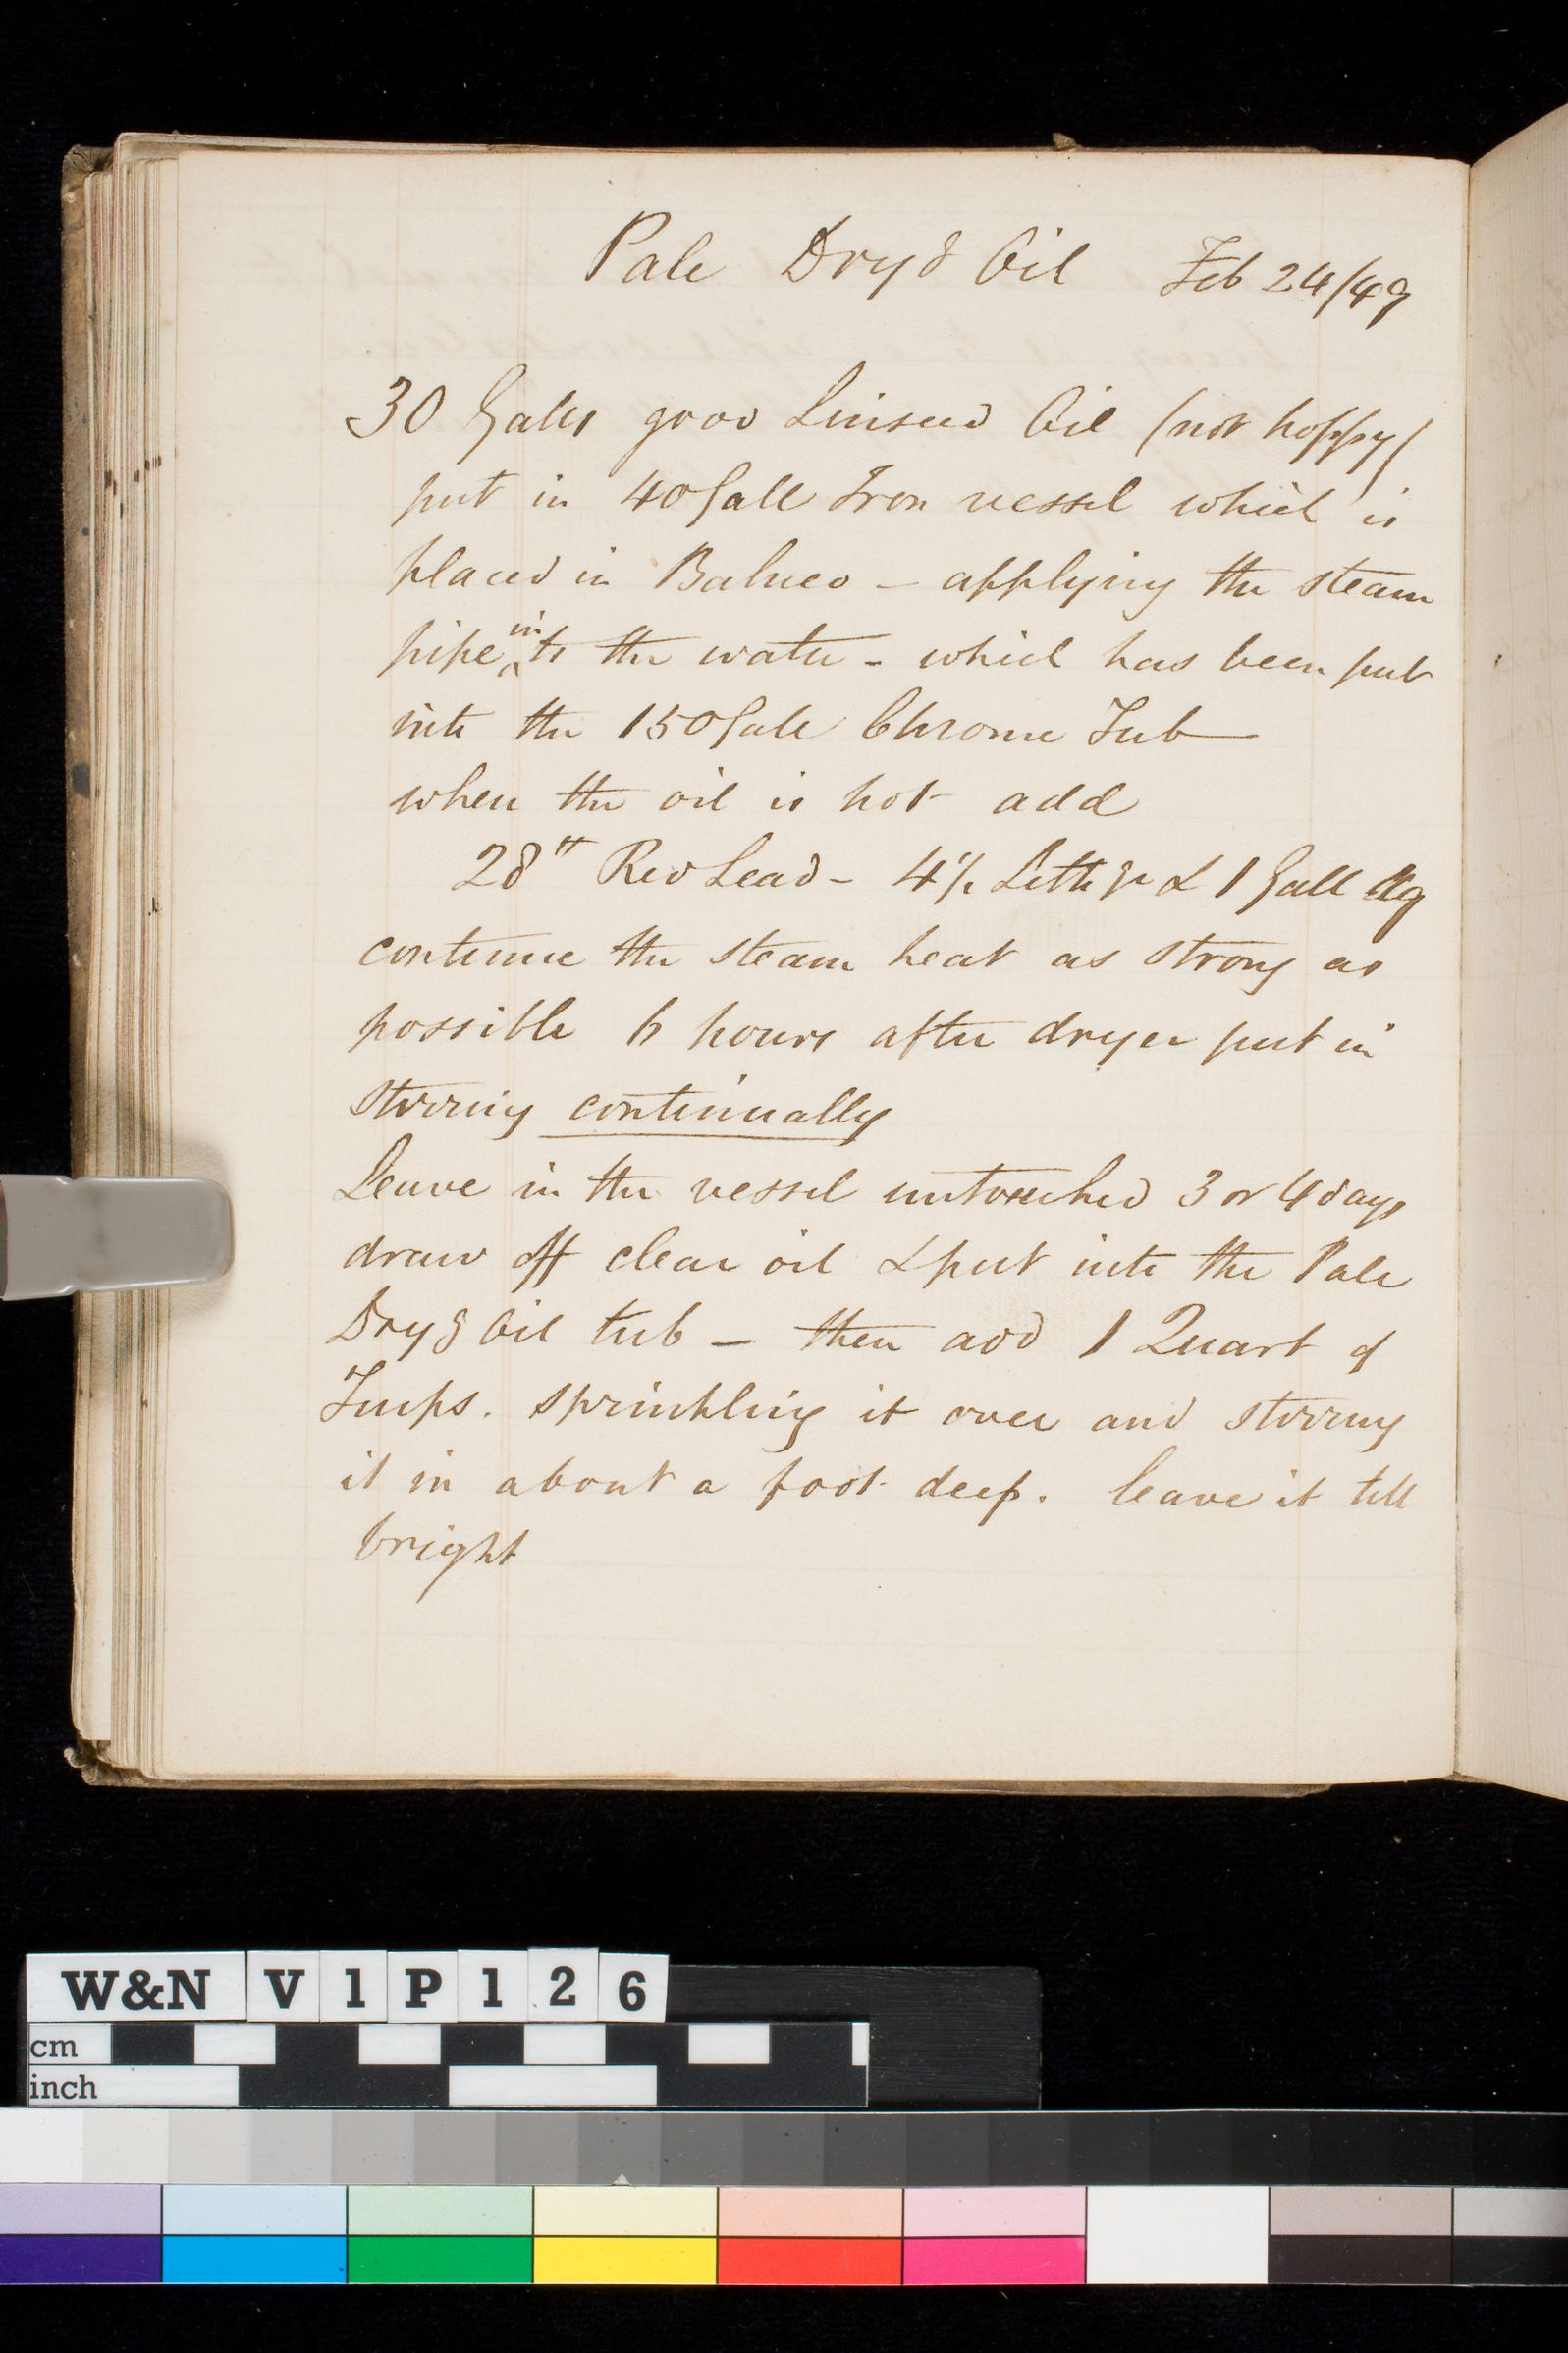 Pale Dryg Oil Feb 24/49
30 Galls good Linseed Oil (not hoppy)
put in 40 Gall Iron vessel which is
placed in Balneo - applying the steam
pipe into the water - which has been put
into the 150 Gall Chrome Tub
when the oil is hot add
28 lb Red Lead - 4 ½ Lithge & 1 Gall
continue the steam heat as strong as
possible 6 hours after dryer put in
stirring continually
Leave in the vessel untouched 3 or 4 days
draw off clear oil & put into the Pale
Dryg Oil tub - then add 1 Quart of
Turps. sprinkling it over and stirring
it in about a foot deep. leave it till
bright
W&N V 1 P 1 2 6
cm
inch